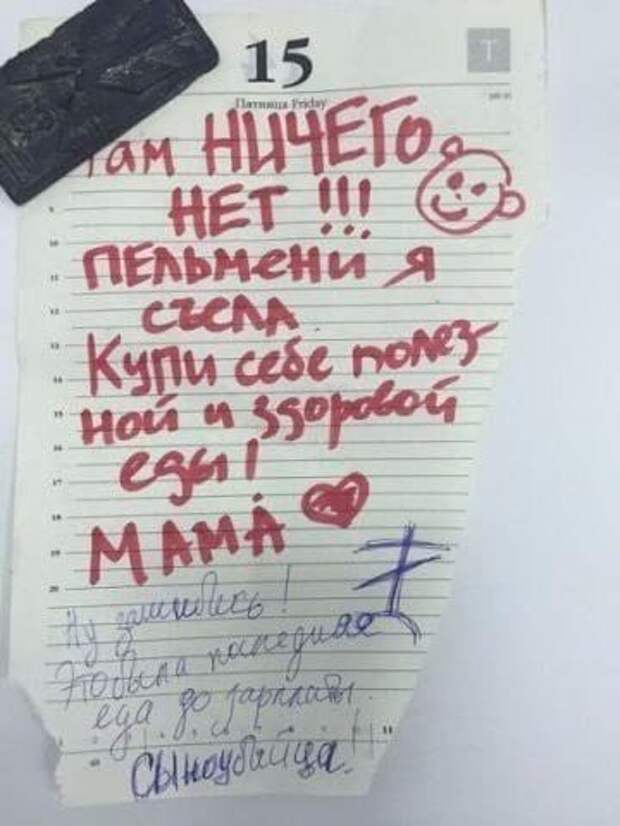 15
T
Пятница Friday
Там НИЧЕГО
НЕТ !!!
ПЕЛЬМЕНИ Я
СЪЕЛА
Купи себе полез-
ной и здоровой
еды!
МАМА
Ну зашибись!
Это была последняя
еда до зарплаты.
Сыноубийца!